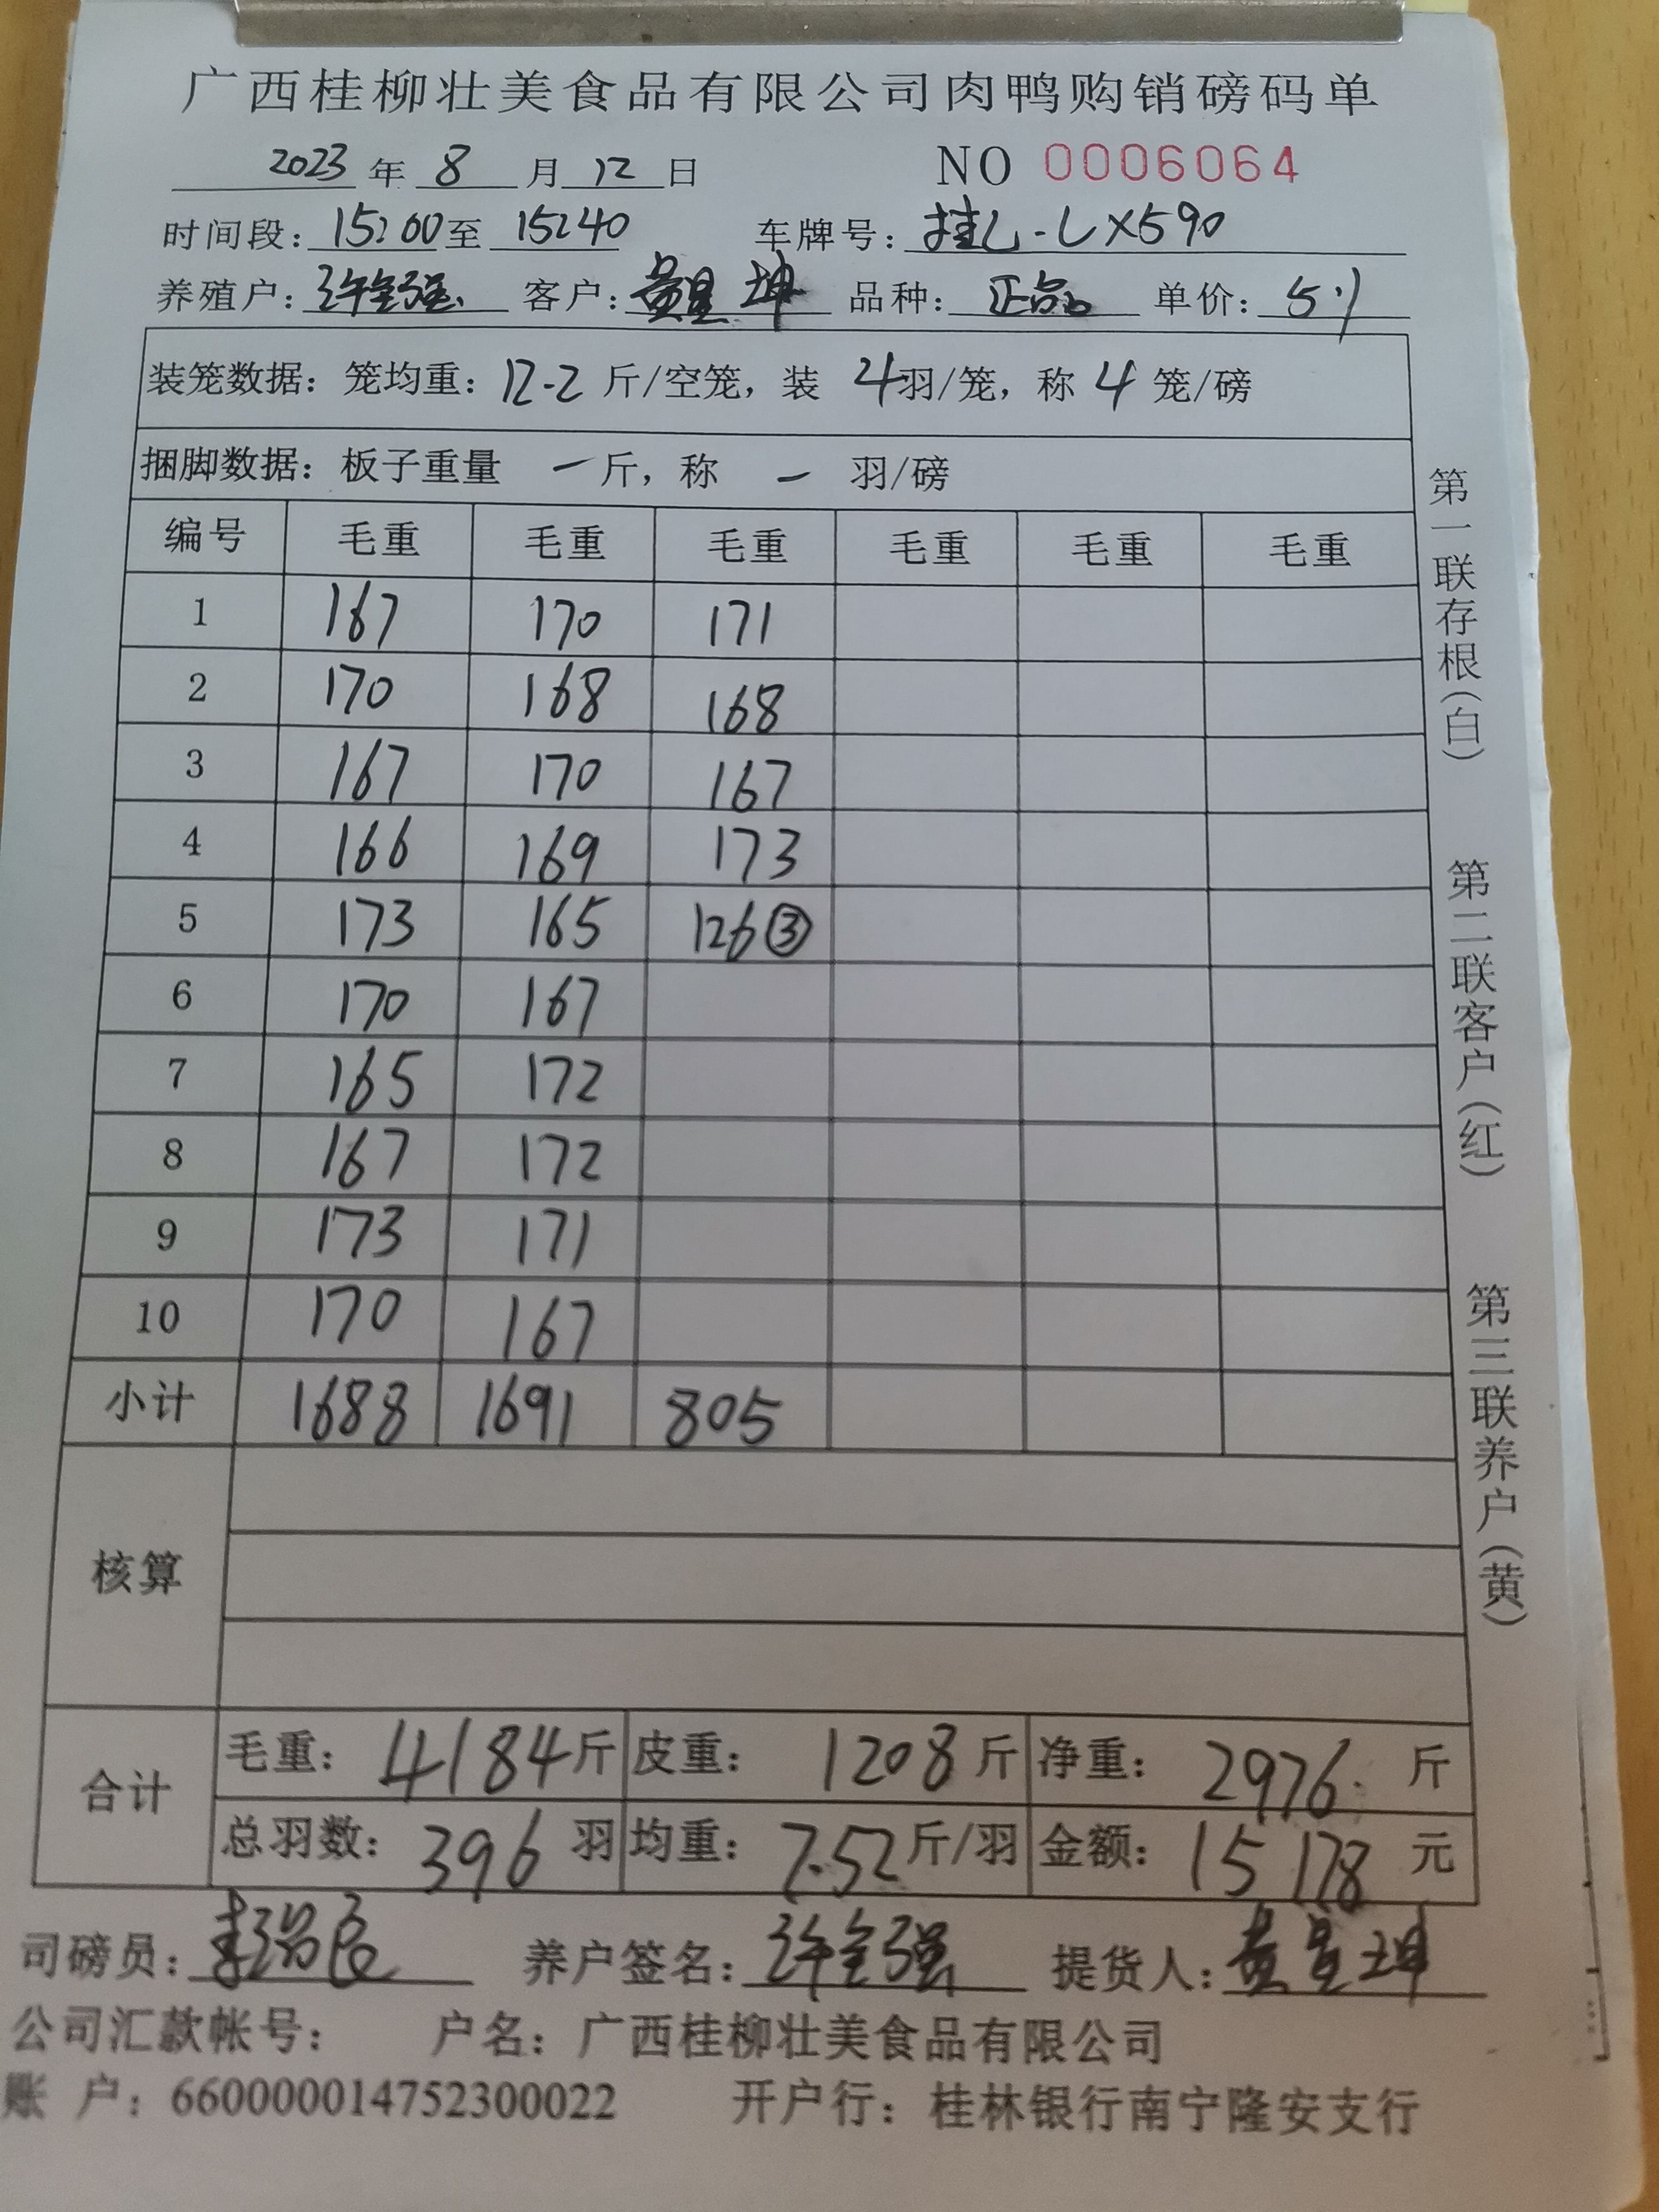 广西桂柳壮美食品有限公司肉鸭购销磅码单
2023 年 8 月 12 日 NO 0006064
时间段: 15:00 至 15:40 车牌号: 桂L-LX590
养殖户: 许全强 客户: 黄星坤 品种: 正品 单价: 5.1
装笼数据: 笼均重: 12.2 斤/空笼, 装 4 羽/笼, 称 4 笼/磅
捆脚数据: 板子重量 一 斤, 称 一 羽/磅
编号 毛重 毛重 毛重 毛重 毛重 毛重
1 167 170 171
2 170 168 168
3 167 170 167
4 166 169 173
5 173 165 126③
6 170 167
7 165 172
8 167 172
9 173 171
10 170 167
小计 1688 1691 805
核算
合计
毛重: 4184 斤 皮重: 1208 斤 净重: 2976 斤
总羽数: 396 羽 均重: 7.52 斤/羽 金额: 15178 元
司磅员: 养户签名: 许全强 提货人: 黄星坤
公司汇款帐号: 户名: 广西桂柳壮美食品有限公司
账 户: 660000014752300022 开户行: 桂林银行南宁隆安支行
第一联存根(白)
第二联客户(红)
第三联养户(黄)